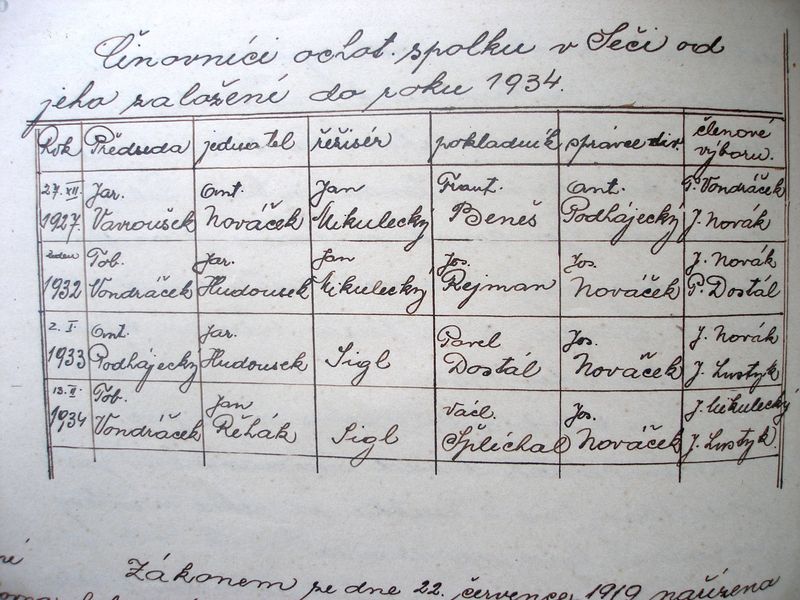 Činovníci ochot. spolku v Seči od
jeho založení do roku 1934.
Rok Předseda jednatel režisér pokladník správce div. členové
výboru.
27. XII. Jar. Ant. Jan Frant. Ant. P. Vondráček
1927. Vavroušek Nováček Mikulecký Beneš Podhájecký J. Novák
leden Tob. Jar. Jan Jos. Jos. J. Novák
1932 Vondráček Hudousek Mikulecký Rejman Nováček P. Dostál
2. I. Ant. Jar. Pavel Jos. J. Novák
1933 Podhájecký Hudousek Sigl Dostál Nováček J. Lustyk
13. II. Tob. Jan Václ. Jos. J. Mikulecký
1934 Vondráček Řehák Sigl Šplíchal Nováček J. Lustyk.
Zákonem ze dne 22. července 1919 nařízena